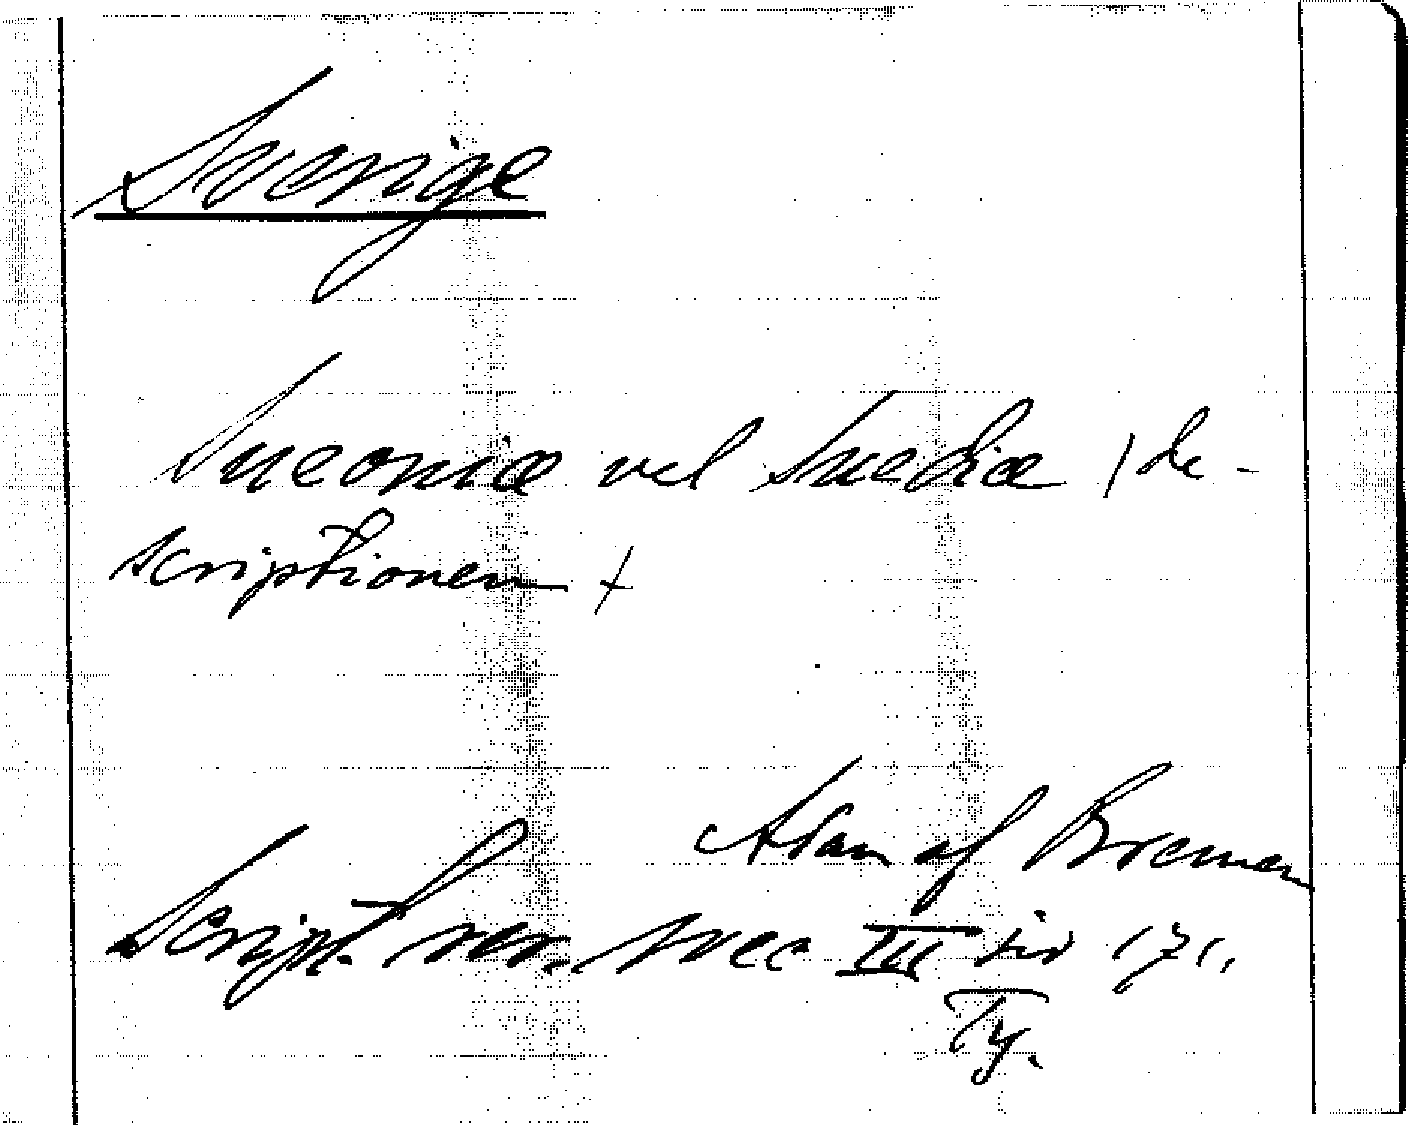 Sverige
Sueoniæ vel Suediæ / de-
scriptionem /
Adam af Bremen
Script. rer. svec III sid 171.
Ty.